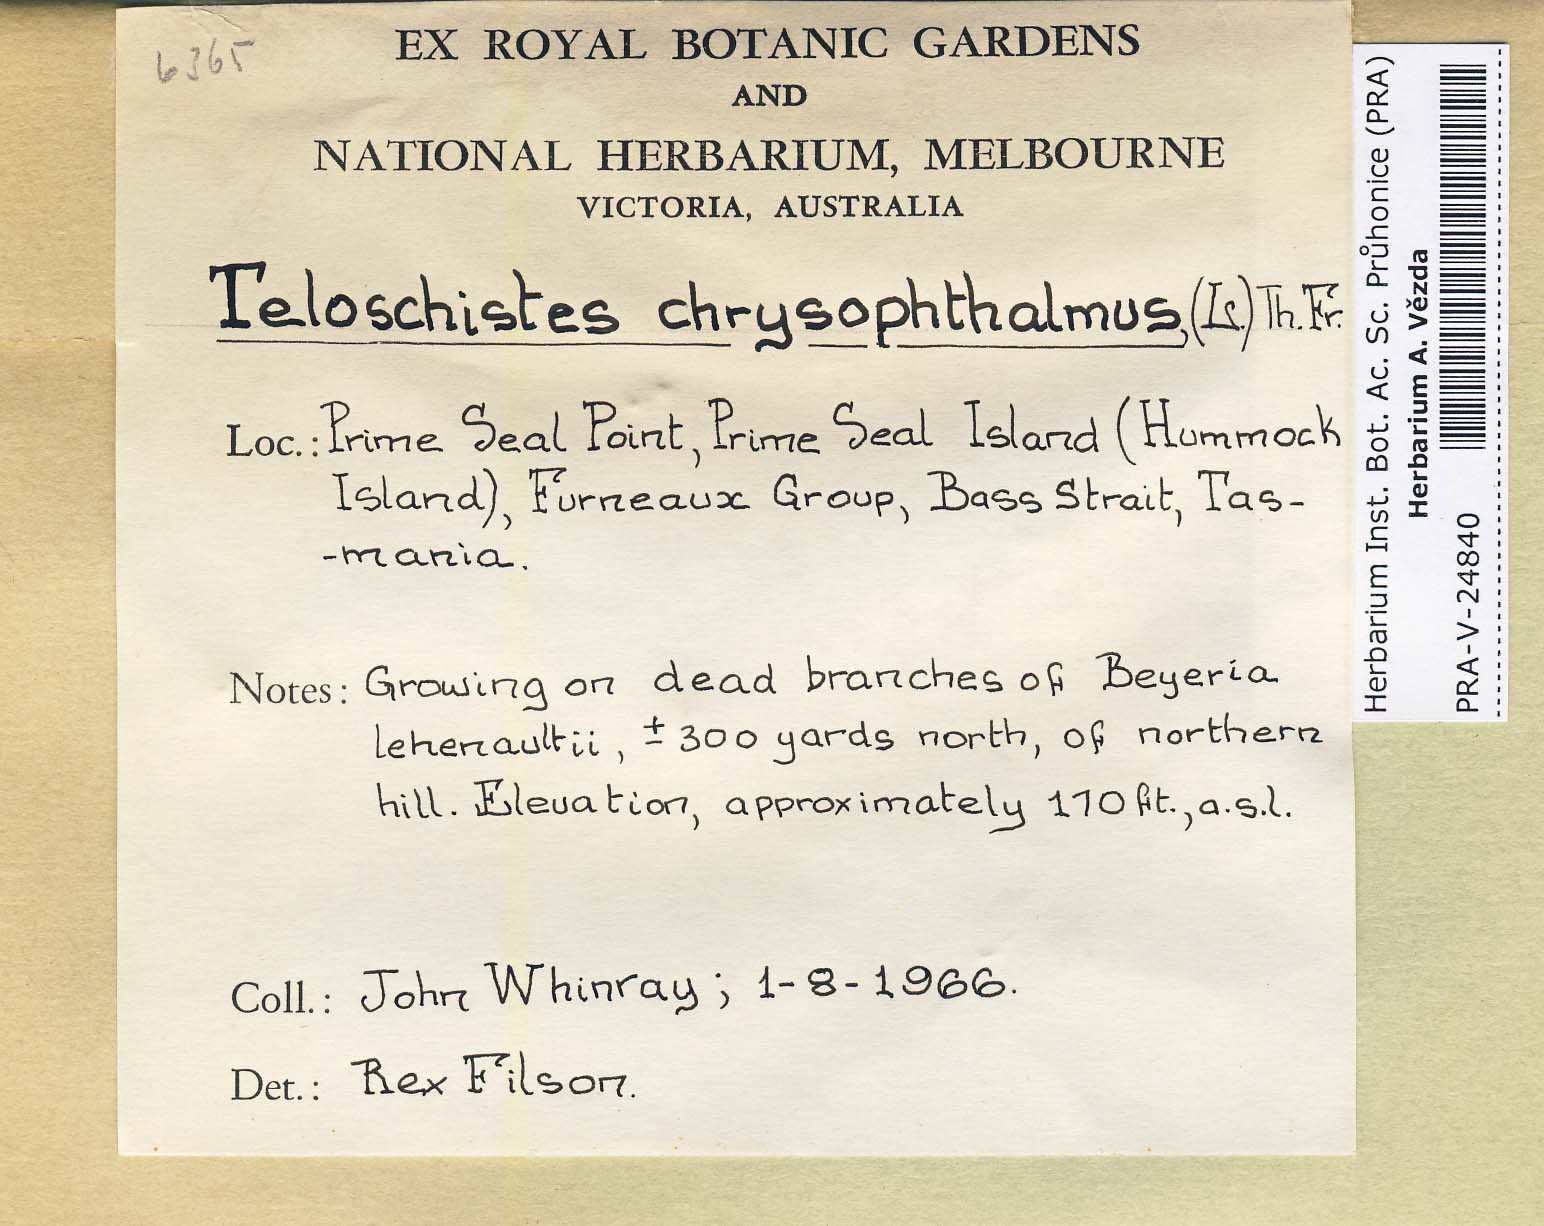 6365
EX ROYAL BOTANIC GARDENS
AND
NATIONAL HERBARIUM, MELBOURNE
VICTORIA, AUSTRALIA
Teloschistes chrysophthalmus, (L.) Th. Fr.
Loc.: Prime Seal Point, Prime Seal Island (Hummock
Island), Furneaux Group, Bass Strait, Tas-
-mania.
Notes: Growing on dead branches of Beyeria
lehenaultii, ± 300 yards north, of northern
hill. Elevation, approximately 170 ft., a.s.l.
Coll.: John Whinray; 1-8-1966.
Det.: Rex Filson.
Herbarium Inst. Bot. Ac. Sc. Průhonice (PRA)
Herbarium A. Vězda
PRA-V-24840